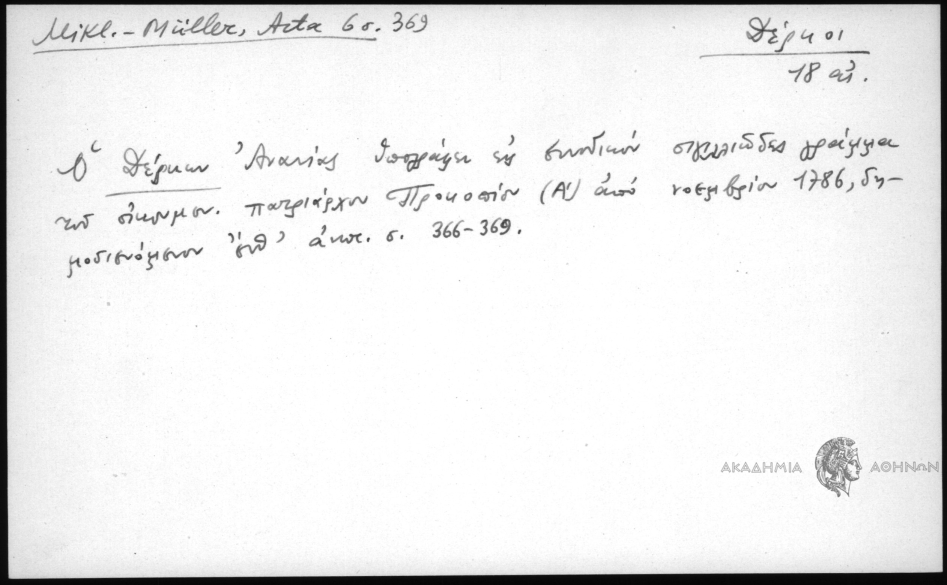 Mikl.-Müller, Acta 6 σ. 369
Δέρκοι
18 αἰ.
Ὁ Δέρκων Ἀνανίας ὑπογράφει εἰς συνοδικόν σιγιλλιῶδες γράμμα
τοῦ οἰκουμεν. πατριάρχου Προκοπίου (Α') ἀπό νοεμβρίου 1786, δη-
μοσιευόμενον ἐνθ' ἀνωτ. σ. 366-369.
ΑΚΑΔΗΜΙΑ ΑΘΗΝΩΝ